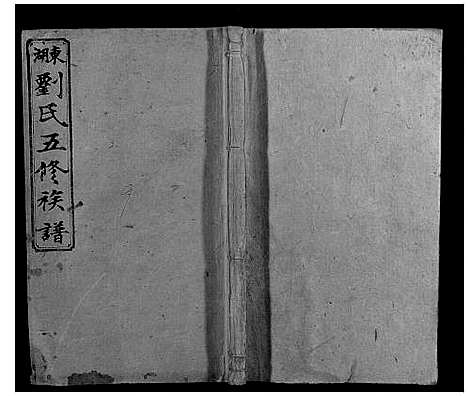 東湖劉氏五修族譜